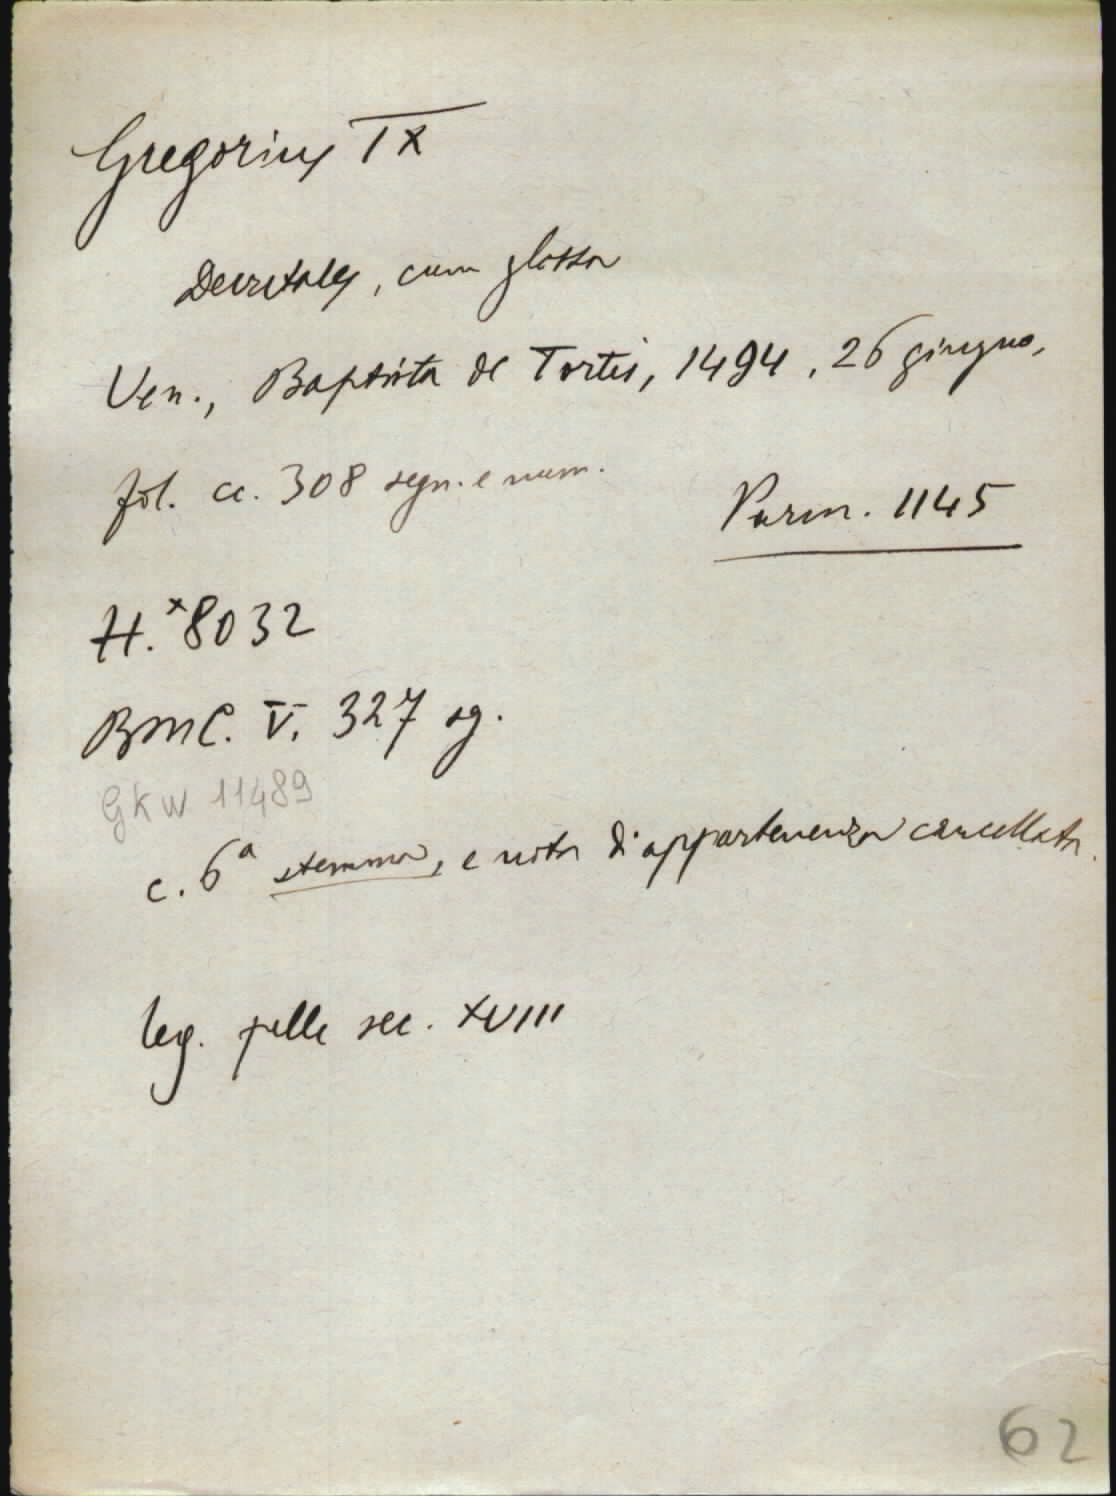 Gregorius IX
Decretales, cum glossa
Ven., Baptista de Tortis, 1494, 26 giugno,
fol. cc. 308 segn. e num.
Parm. 1145
H.*8032
BMC. V. 327 sg.
GKW 11489
c. 6a stemma, e nota di appartenenza cancellata.
leg. pelle sec. XVIII
62